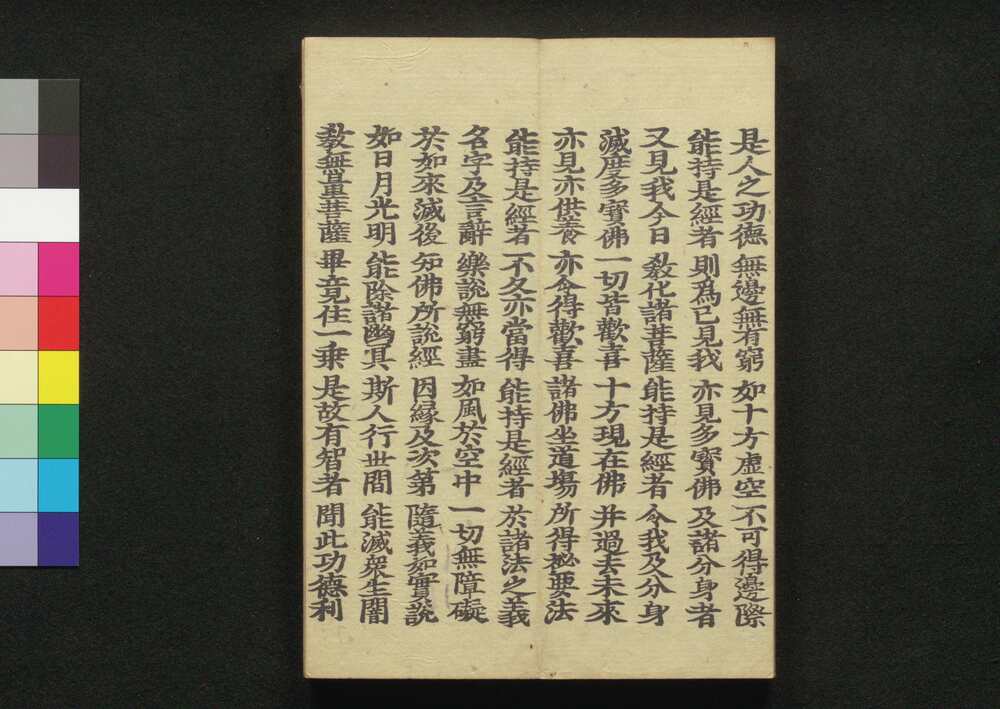 是人之功德 無邊無有窮 如十方虛空 不可得邊際
能持是經者 則為已見我 亦見多寶佛 及諸分身者
又見我今日 敎化諸菩薩 能持是經者 令我及分身
滅度多寶佛 一切皆歡喜 十方現在佛 并過去未來
亦見亦供養 亦令得歡喜 諸佛坐道場 所得祕要法
能持是經者 不久亦當得 能持是經者 於諸法之義
名字及言辭 樂說無窮盡 如風於空中 一切無障礙
於如來滅後 知佛所說經 因緣及次第 隨義如實說
如日月光明 能除諸幽冥 斯人行世間 能滅衆生闇
敎無量菩薩 畢竟住一乗 是故有智者 聞此功德利